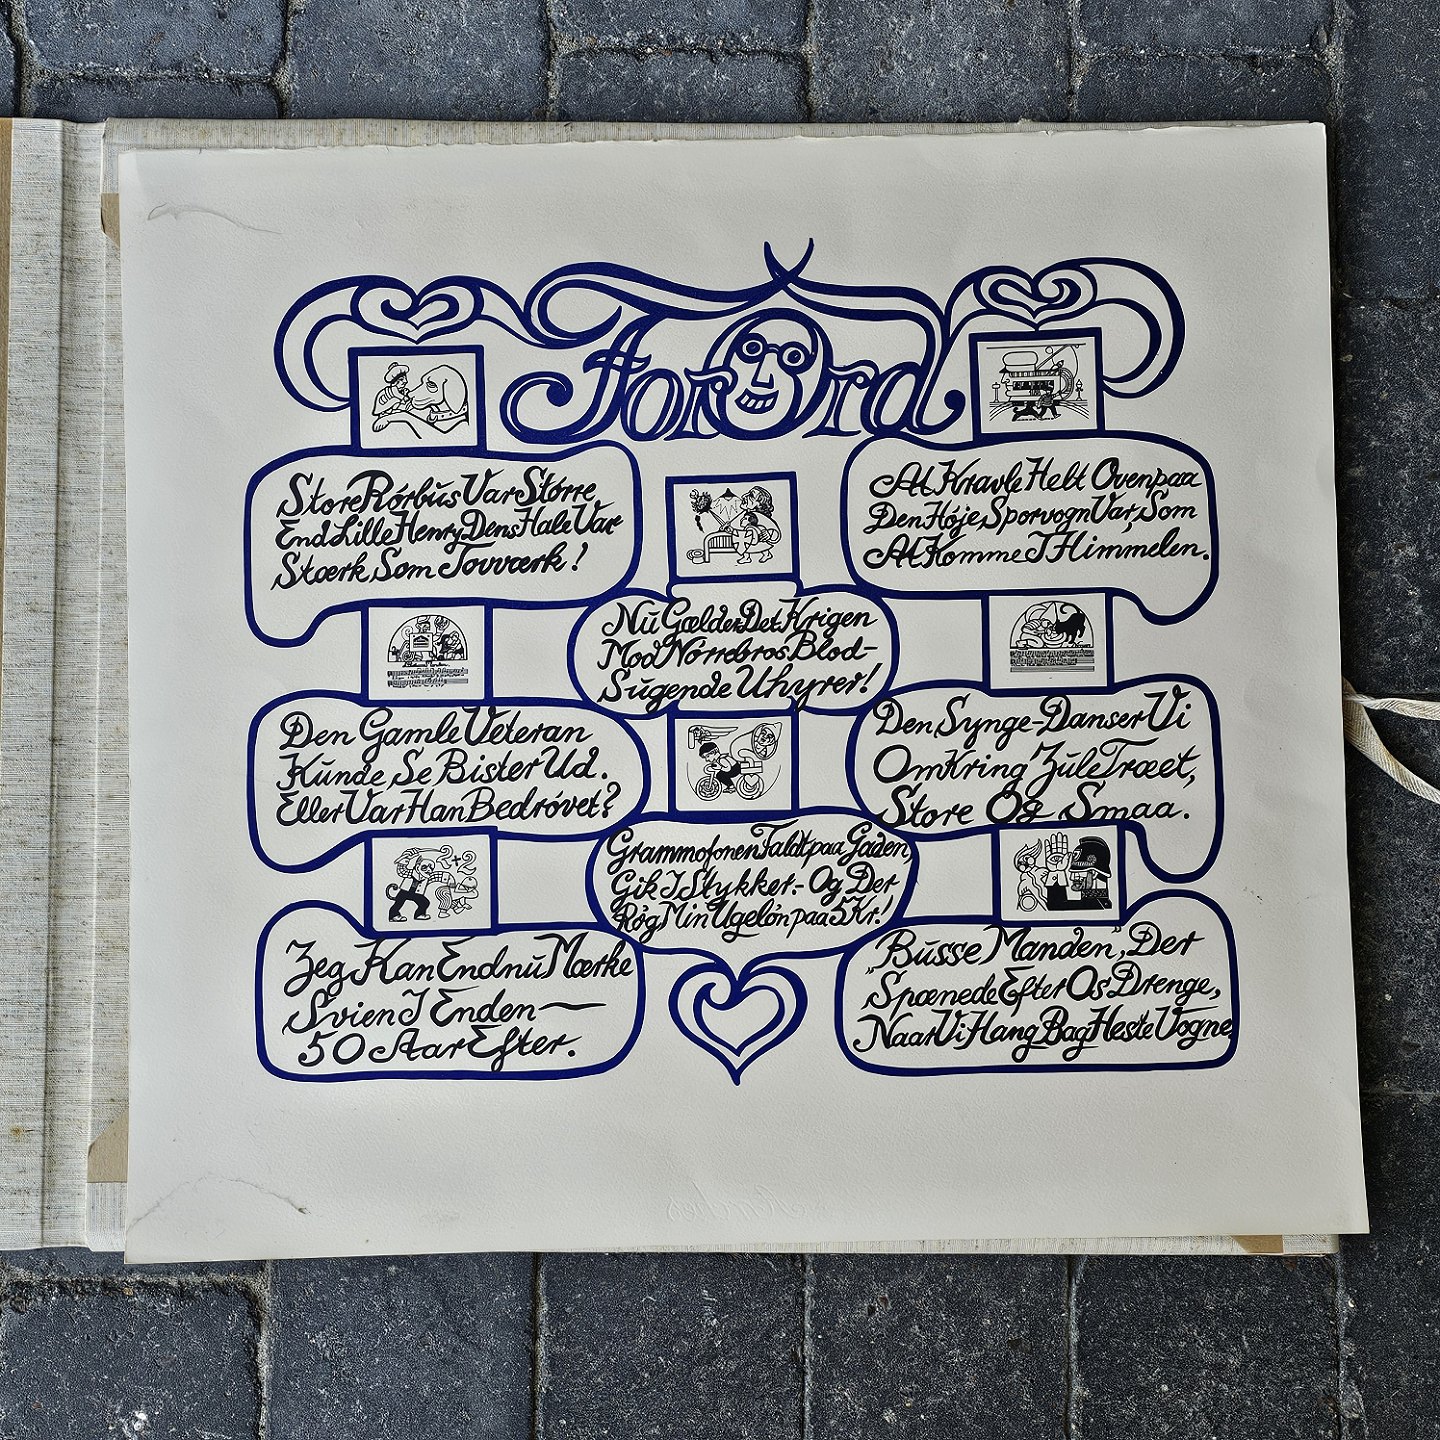 ForOrd
Store Rórbùs Var Större
End Lille Henry, Dens Hale Var
Stærk Som Tovværk!
At Kravle Helt Ovenpaa
Den Höje Sporvogn Var, Som
At Komme I Himmelen.
Nū Gælder Det Krigen
Mod Nörrebros Blod-
Sūgende Uhyrer!
Den Gamle Veteran
Kunde Se Bister Ud.
Eller Var Han Bedrövet?
Den Synge-Danser Vi
Omkring Jūle Træet,
Store Og Smaa.
2+2
Grammofonen Faldt paa Gaden,
Gik I Stykker.- Og Der
Rög Min Ugelön paa 5 Kr.!
Jeg Kan Endnū Mærke
Svien I Enden—
50 Aar Efter.
"Būsse Manden", Der
Spænede Efter Os Drenge,
Naar Vi Hang Bag Heste Vogne.